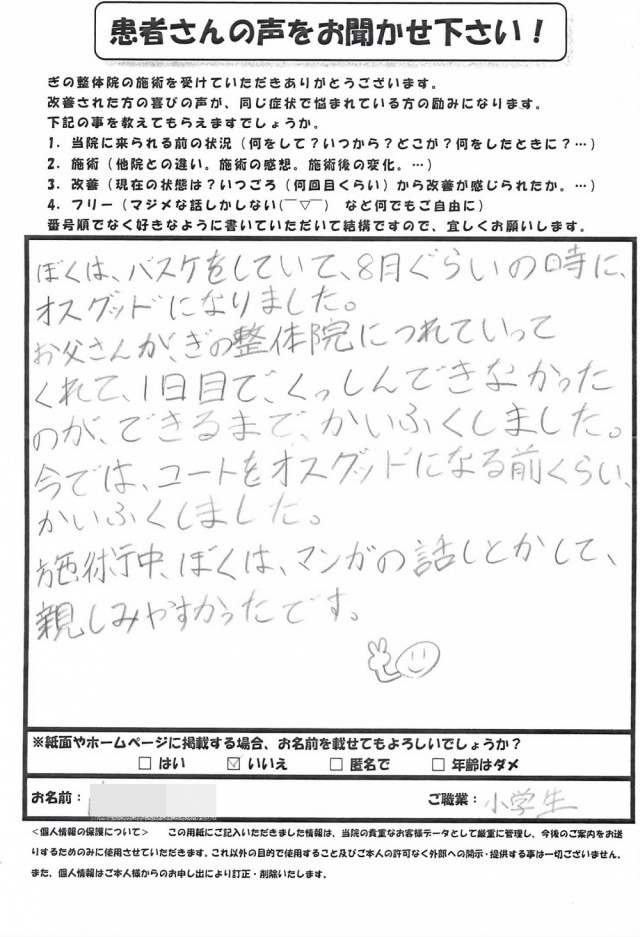 患者さんの声をお聞かせ下さい！
ぎの整体院の施術を受けていただきありがとうございます。
改善された方の喜びの声が、同じ症状で悩まれている方の励みになります。
下記の事を教えてもらえますでしょうか。
1．当院に来られる前の状況（何をして？いつから？どこが？何をしたときに？…）
2．施術（他院との違い。施術の感想。施術後の変化。…）
3．改善（現在の状態は？いつごろ（何回目くらい）から改善が感じられたか。…）
4．フリー（マジメな話しかしない(￣▽￣)　など何でもご自由に）
番号順でなく好きなように書いていただいて結構ですので、宜しくお願いします。
ぼくは、バスケをしていて、8月ぐらいの時に、
オスグッドになりました。
お父さんが、ぎの整体院につれていって
くれて、1日目で、くっしんできなかった
のが、できるまで、かいふくしました。
今では、コートをオスグッドになる前くらい、
かいふくしました。
施術中、ぼくは、マンガの話しとかして、
親しみやすかったです。
※紙面やホームページに掲載する場合、お名前を載せてもよろしいでしょうか？
□ はい　☑ いいえ　□ 匿名で　□ 年齢はダメ
お名前：　ご職業：小学生
＜個人情報の保護について＞　この用紙にご記入いただきました情報は、当院の貴重なお客様データとして厳重に管理し、今後のご案内をお送
りするためのみに使用させていただきます。これ以外の目的で使用すること及びご本人の許可なく外部への開示・提供する事は一切ございません。
また、個人情報はご本人様からのお申し出により訂正・削除いたします。